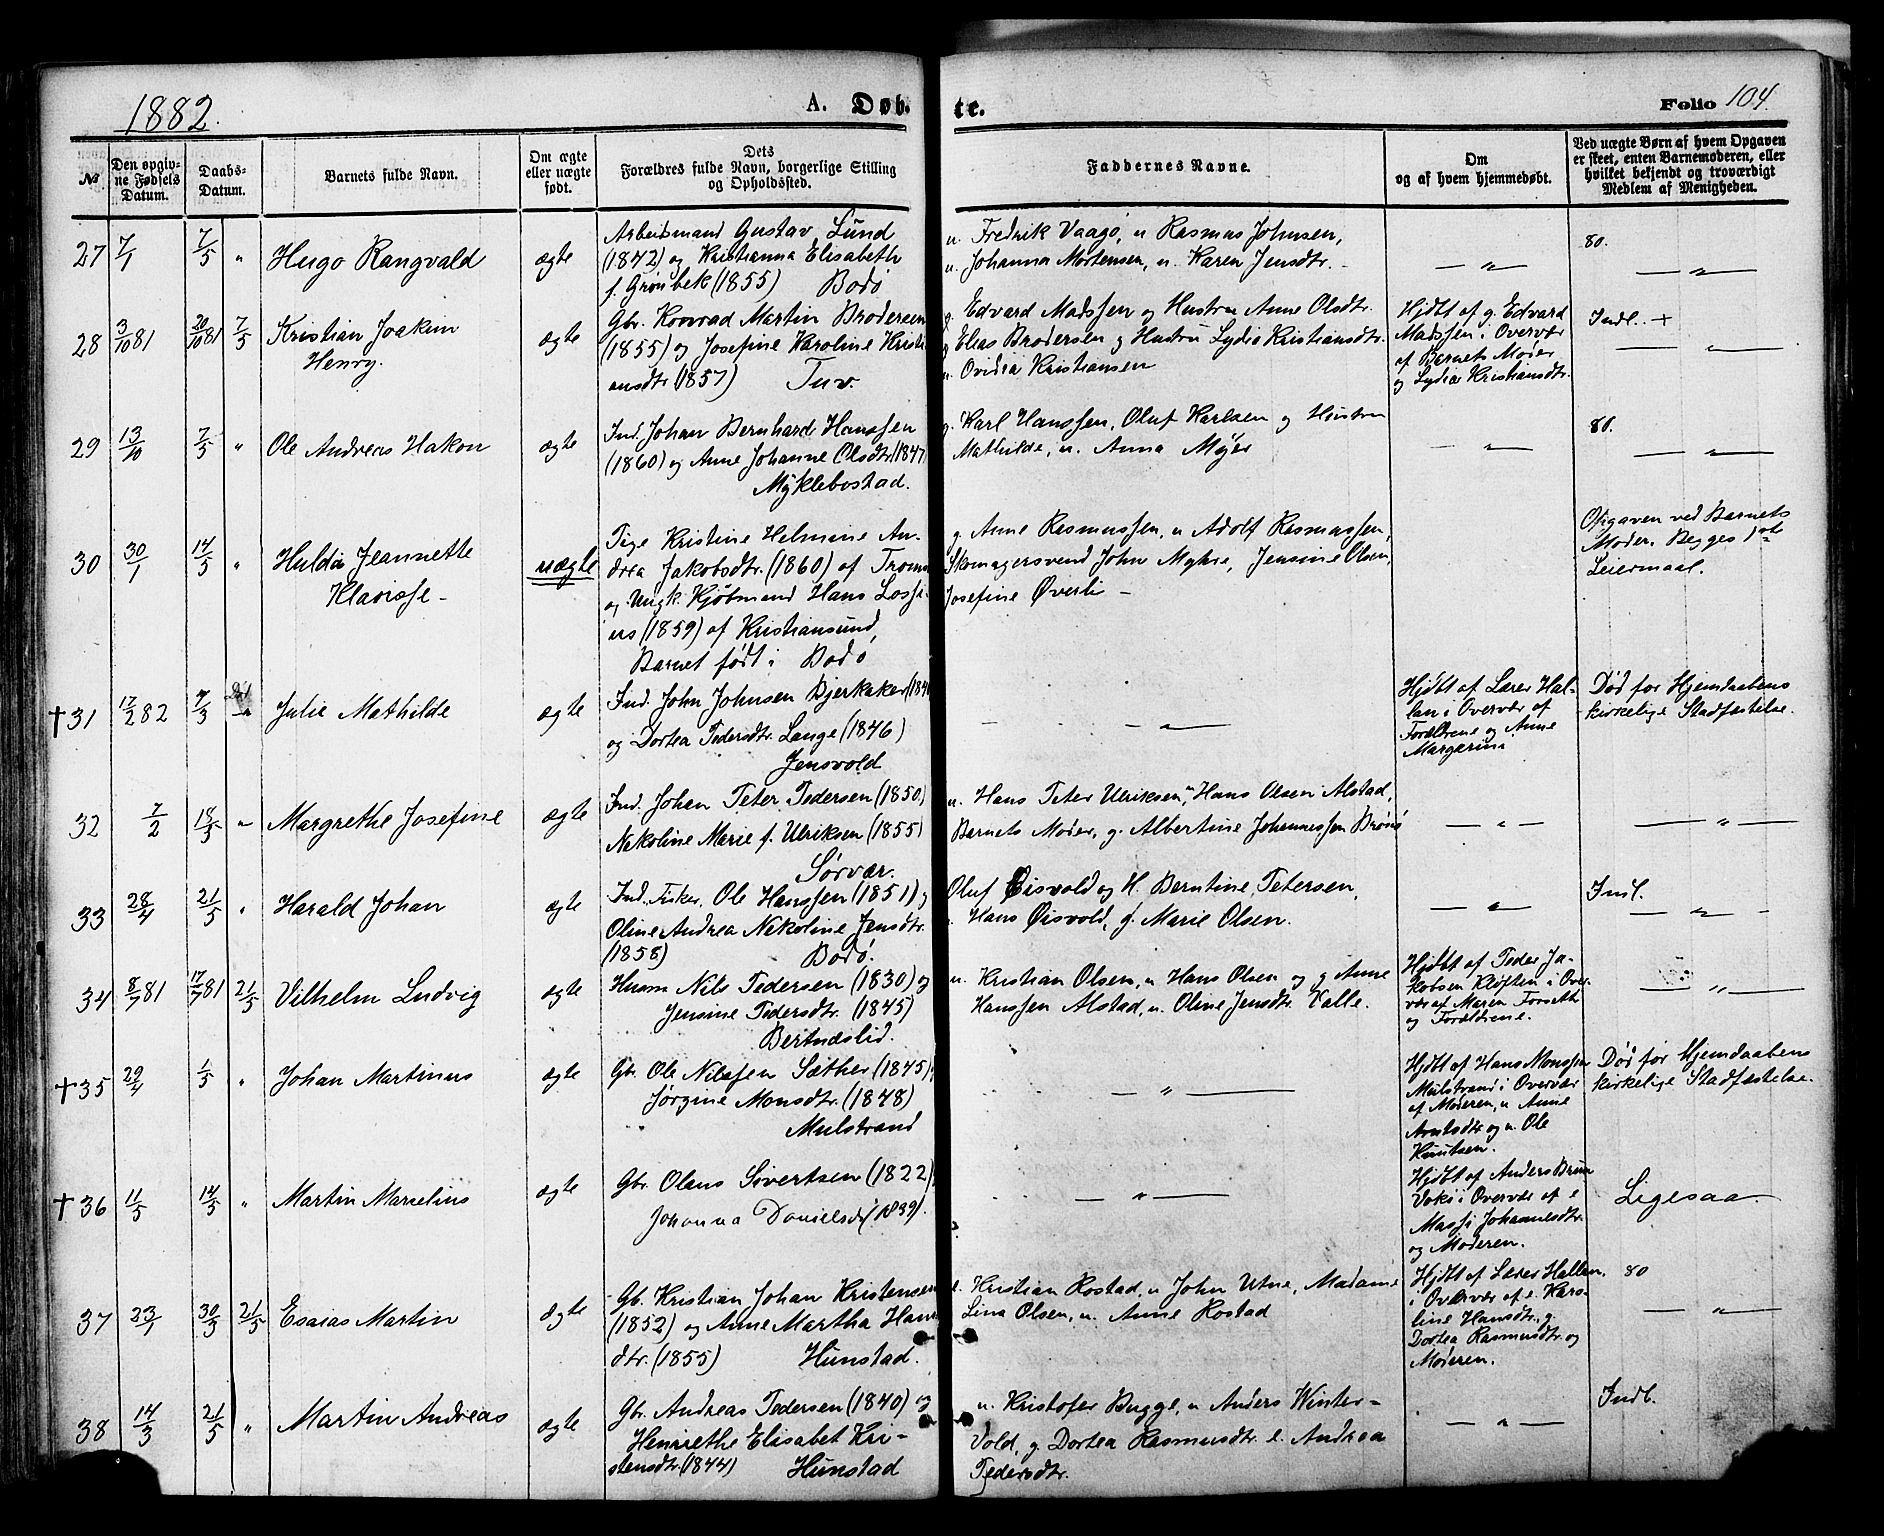 1882.
A. Døb-
te.
Folio 104.
№
Den opgiv-
ne Fødsels
Datum.
Daabs-
Datum.
Barnets fulde Navn.
Om ægte
eller uægte
født.
Dets
Forældres fulde Navn, borgerlige Stilling
og Opholdssted.
Faddernes Navne.
Om
og af hvem hjemmedøbt.
Ved uægte Børn af hvem Opgaven
er skeet, enten Barnemoderen, eller
hvilket bekjendt og troværdigt
Medlem af Menigheden.
27 7/1 7/5 " Hugo Rangvald
ægte
Arbeidsmand Gustav Lund
(1842) og Kristianna Elisabeth
f. Grønbek (1855) Bodø
u. Fredrik Vaagø, u. Rasmus Johnsen,
u. Johanna Mortensen, u. Karen Jensdtr.
— " —
80.
— " —
28 3/10 81 20/10 81 7/5 Kristian Joakim
Henry.
ægte
Gbr. Konrad Martin Brodersen
(1855) og Josefine Karoline Kristi-
ansdtr. (1857) Tuv.
g. Edvard Madssen og Hustru Anne Olsdtr.
g. Elias Brodersen og Hustru Lydia Kristiansdtr.
u. Ovidia Kristiansen
Hjdbt af g. Edvard
Madssen i Overvær
af Barnets Moder
og Lydia Kristiansdtr.
Indl. +
— " —
29 13/10 7/5 " Ole Andreas Hakon
ægte
Ind. Johan Bernhard Hanssen
(1860) og Anne Johanne Olsdtr. (1847)
Myklebostad.
g. Karl Hanssen, Oluf Karlsen og Hustru
Mathilde, u. Anna Myer
— " —
80.
— " —
30 30/1 14/5 " Hulda Jeannette
Klarisse
uægte
Pige Kristine Helmine An-
drea Jakobsdtr. (1860) af Troms
og Ungk. Kjøbmand Hans Losse-
us (1859) af Kristiansund,
Barnet født i Bodø
g. Anne Rasmussen, u. Adolf Rasmussen,
Skomagersvend John Myhre, Jensine Olsen,
Josefine Øverli
Opgaven ved Barnets
Moder. Begges 1ste
Leiermaal.
†31 17/2 82 7/3 Julie Mathilde
ægte
Ind. John Johnsen Bjerkaker
og Dortea Pedersdtr. Lange (1846)
Jensvold
— " —
Hjdbt af Lærer Hal-
lan i Overvær af
Forældrene og Anne
Margarini
Død før Hjemdaabens
kirkelige Stadfæstelse.
32 7/2 18/5 " Margrethe Josefine
ægte
Ind. Johan Peter Pedersen (1850)
Nekoline Marie f. Ulriksen (1855)
Sørvær.
u. Hans Peter Ulriksen, Hans Olsen Alstad,
Barnets Moder, g. Albertine Johannessen Brønø
— " —
— " —
33 28/4 21/5 " Harald Johan
ægte
Ind. Fisker, Ole Hanssen (1851) og
Oline Andrea Nekoline Jensdtr.
(1858) Bodø.
Oluf Øisvold og H. Berntine Petersen,
Hans Øisvold, g. Marie Olsen.
— " —
Indl.
— " —
34 8/7 81 17/7 81 21/5 Vilhelm Ludvig
ægte
Husm. Nils Pedersen (1830) og
Jensine Pedersdtr. (1845)
Bertnæslid.
u. Kristian Olsen, u. Hans Olsen og g. Anne
Hanssen Alstad, u. Oline Jensdtr. Valle.
Hjdbt af Peder Ja-
kobsen Kløften i Over-
vær af Maren Forseth
og Forældrene.
— " —
†35 29/4 1/5 " Johan Martinus
ægte
Gbr. Ole Nilssen Sæther (1845),
Jørgine Monsdtr. (1848)
Mulstrand
— " —
Hjdbt af Hans Monssen
Mulstrand i Overvær
af Moderen, u. Anne
Arntsdtr og u. Ole
Knutsen.
Død før Hjemdaabens
kirkelige Stadfæstelse.
†36 11/5 14/5 " Martin Marselius
ægte
Gbr. Olaus Sivertsen (1822),
Johanna Danielsd. (1839).
— " —
Hjdbt af Anders Brun
i Overvær af e.
Massi Johannesdtr.
og Moderen.
Ligesaa
37 23/1 30/3 21/5 Esaias Martin
ægte
Gb. Kristian Johan Kristensen
(1852) og Anne Martha Hans
dtr. (1855) Hunstad.
e. Kristian Rostad, u. John Utne, Madame
Lina Olsen, u. Anne Rostad
Hjdbt af Lærer Hallan,
i Overvær af e. Karo-
line Hansdtr., g.
Dortea Rasmusdtr. og
Moderen.
80
— " —
38 14/3 21/5 " Martin Andreas
ægte
Gbr. Andreas Pedersen (1840) og
Henriethe Elisabet Kri-
stensdtr. (1844) Hunstad
u. Kristofer Bugge, u. Anders Winter-
Vold, g. Dortea Rasmusdtr. e. Andrea
Pedersdtr.
— " —
Indl.